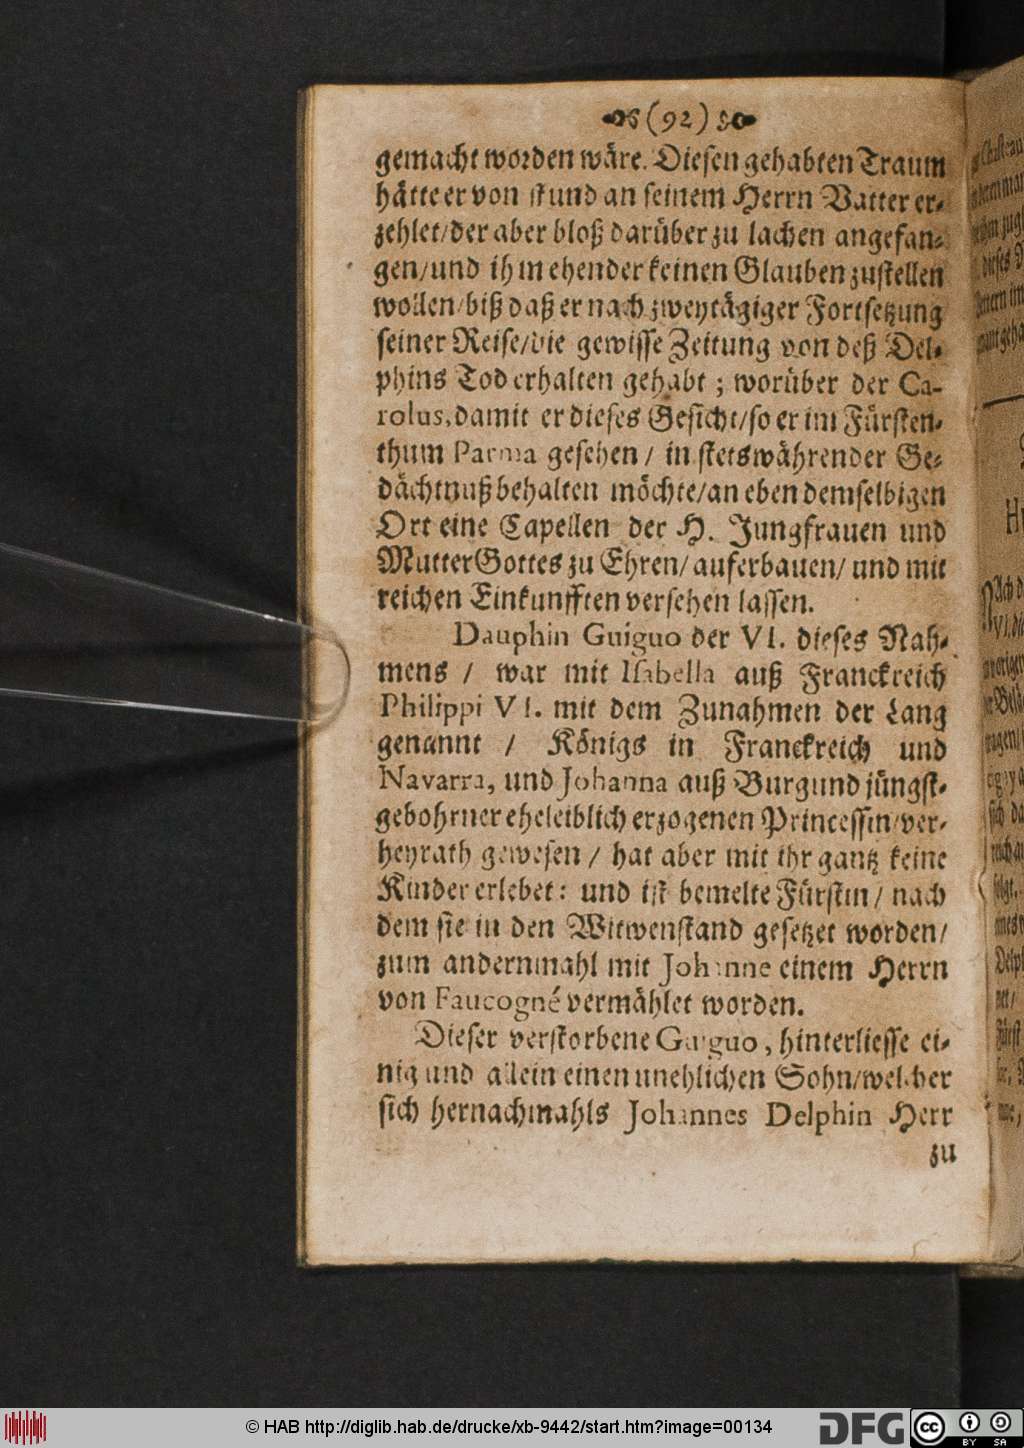 (92)
gemacht worden wäre. Diesen gehabten Traum
hätte er von stund an seinem Herrn Vatter er-
zehlet/der aber bloß darüber zu lachen angefan-
gen/und ihm ehender keinen Glauben zustellen
wollen/biß daß er nach zweytägiger Fortsetzung
seiner Reise/die gewisse Zeitung von deß Del-
phins Tod erhalten gehabt; worüber der Ca-
rolus, damit er dieses Gesicht/so er im Fürsten-
thum Parma gesehen / in stetswährender Ge-
dächtnuß behalten möchte/an eben demselbigen
Ort eine Capellen der H. Jungfrauen und
Mutter Gottes zu Ehren/ auferbauen/ und mit
reichen Einkunfften versehen lassen.
Dauphin Guiguo der VI. dieses Nah-
mens / war mit Isabella auß Franckreich
Philippi VI. mit dem Zunahmen der Lang
genannt / Königs in Franckreich und
Navarra, und Johanna auß Burgund jüngst-
gebohrner eheleiblich erzogenen Princessin/ver-
heyrath gewesen / hat aber mit ihr gantz keine
Kinder erlebet: und ist bemelte Fürstin / nach
dem sie in den Witwenstand gesetzet worden/
zum andernmahl mit Johanne einem Herrn
von Faucogné vermählet worden.
Dieser verstorbene Guiguo, hinterliesse ei-
nig und allein einen unehlichen Sohn/welcher
sich hernachmahls Johannes Delphin Herr
zu
© HAB http://diglib.hab.de/drucke/xb-9442/start.htm?image=00134
DFG
cc BY SA